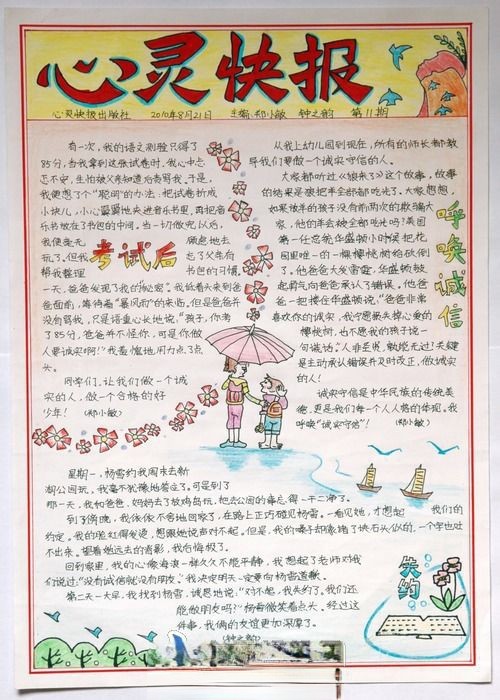 心灵快报
心灵快报出版社 2010年8月21日 主编:郑小敏 钟之韵 第11期
有一次,我的语文测验只得了
85分,当我拿到这张试卷时,我心中忐
忑不安,生怕被父亲知道后责骂我。于是,
我便想了个“聪明”的办法:把试卷折成
小块儿,小心翼翼地夹进音乐书里,再把音
乐书放在了书包的中间。当一切做完以后,
我便毫无
顾忌地去
玩了。但我
忘了父亲有
帮我整理
书包的习惯。
考试后
一天,爸爸发现了我的秘密。我低着头来到爸
爸面前,等待着“暴风雨”的来临,但是爸爸并
没有骂我,只是语重心长地说:“孩子,你考
了85分,爸爸并不怪你,可是你做
人要诚实啊!”我羞愧地用力点了点
头。
同学们,让我们做一个诚
实的人,做一个合格的好
少年! (郑小敏)
从我上幼儿园到现在,所有的师长都教
导我们要做一个诚实守信的人。
大家都听过《狼来了》这个故事,故事
的结果是狼把羊全部都吃光了。大家想想,
如果放羊的孩子没有前两次的欺骗大
家,他的羊会被全部吃光吗?美国
第一任总统华盛顿小时候把花
园里唯一的一棵樱桃树给砍倒
了。他爸爸大发雷霆,华盛顿鼓
起勇气向爸爸承认了错误。他爸
爸一把搂住华盛顿说,“爸爸非常
喜欢你的诚实,我宁愿损失掉心爱的
樱桃树,也不愿我的孩子说一
句谎话。”人非圣贤,孰能无过!关键
是主动承认错误并及时改正,做诚实
的人!
诚实守信是中华民族的传统美
德,更是我们每一个人人格的体现。我
呼唤“诚实守信”! (郑小敏)
呼唤诚信
星期一,杨雪约我周末去新
湖公园玩,我毫不犹豫地答应了。可是到了
那一天,我和爸爸、妈妈去了放鸡岛玩,把去公园的事忘得一干二净了。
到了傍晚,我依依不舍地回家了,在路上正巧碰见杨雪。一看见她,才想起 我们的
约定。我的脸红得发烫,想跟她说声对不起。但是,我的嗓子却像堵了块石头似的,一个字也吐
不出来。望着她远去的背影,我后悔极了。
回到家里,我的心像海浪一样久久不能平静,我想起了老师对我
们说过:“没有诚信就没有朋友。”我决定明天一定要向杨雪道歉。
第二天一大早,我找到杨雪,诚恳地说:“对不起,我失约了。我们还
能做朋友吗?”杨雪微笑着点头,经过这
件事,我俩的友谊更加深厚了。
(钟之韵)
失约